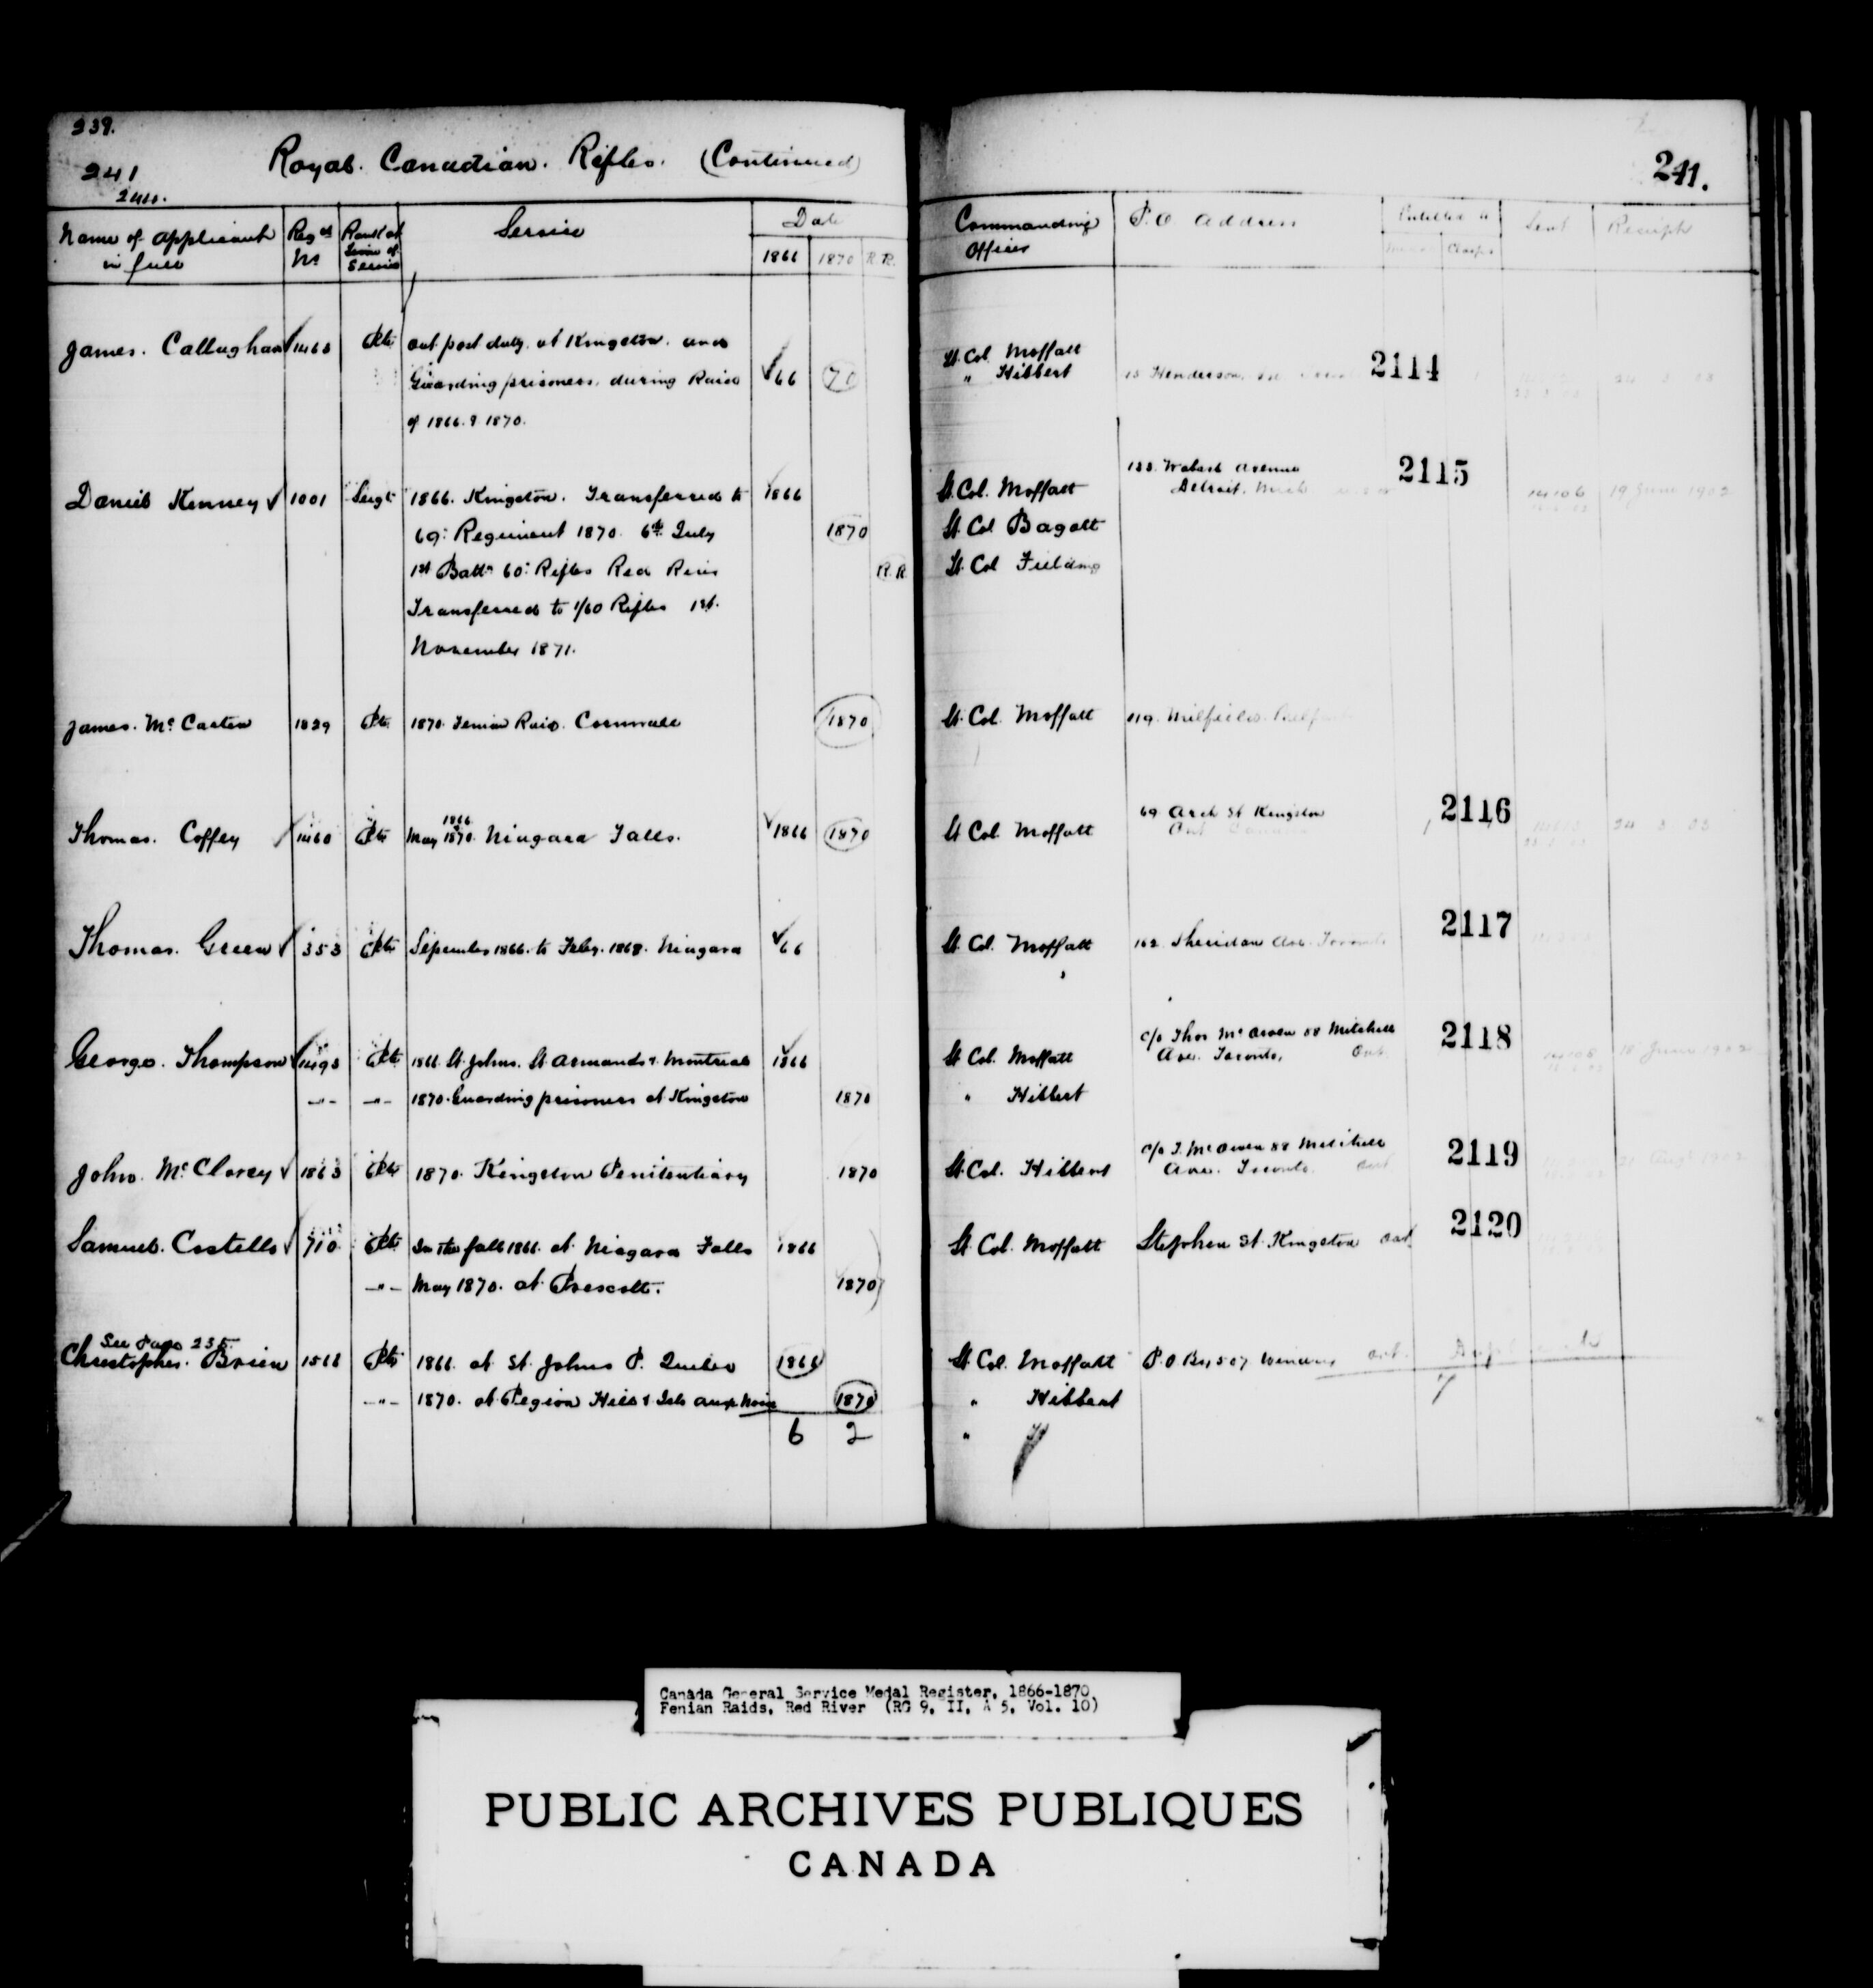 239.
241
240.
Royal. Canadian. Rifles. (Continued)
Name of Applicant in full
Regtl No
Rank at Time of Service
Service
Date
1866 1870 R.R.
James. Callaghan 1463 Pte out post duty. at Kingston. and
Guarding prisoners. during Raid 66 70
of 1866. & 1870.
Daniel Kenney 1001 Sergt 1866. Kingston. Transferred to 1866
69th Regiment 1870. 6th July 1870
1st Battn 60th Rifles Red River R.R.
Transferred to 1/60 Rifles 1st.
November 1871.
James. Mc Carten 1829 Pte 1870. Fenian Raid. Cornwall 1870
Thomas. Coffey 1460 Pte May 1870. 1866 Niagara Falls. 1866 1870
Thomas. Green 353 Pte September 1866. to Feby. 1868. Niagara 66
George. Thompson 1493 Pte 1866. St. Johns. St Armands & Montreal 1866
-"- -"- 1870. Guarding prisoners at Kingston 1870
John. Mc Clorey 1863 Pte 1870. Kingston Penitentiary 1870
Samuel. Costello 910 Pte In the fall 1866. at Niagara Falls 1866
-"- May 1870. at Prescott. 1870
See Page 235.
Christopher. Brien 1566 Pte 1866. at St. Johns P. Quebec 1866
-"- 1870. at Pegion Hill & Isle aux Noix 1870
6 2
241.
Commanding Officer
P.O Address
Entitled to
Medal Clasps
Sent
Receipt
Lt. Col. Moffatt
" Hibbert 15 Henderson 2114
Lt. Col. Moffatt 188. Wabash Avenue 2115
Detroit. Mich 14106 19 June 1902
Lt. Col Bagott
Lt. Col Fielding
Lt. Col. Moffatt 119. Milfield. Belfast
Lt Col Moffatt 69 Arch St Kingston 2116
Ont Canada
Lt Col. Moffatt 162. Sheridan Ave. Toronto 2117
Lt Col. Moffatt c/o Thos Mc Owen 88 Mitchell 2118
Ave. Toronto, Ont. 14105 18 June 1902
" Hibbert
Lt. Col. Hibbert c/o T. Mc Owen 88 Mitchell 2119
Ave. Toronto. Ont
Lt Col. Moffatt Stephen St. Kingston Ont 2120
Lt. Col. Moffatt P.O Box 507 Windsor Ont.
" Hibbert 7
"
Canada General Service Medal Register, 1866-1870
Fenian Raids, Red River (RG 9, II, A 5, Vol. 10)
PUBLIC ARCHIVES PUBLIQUES
CANADA